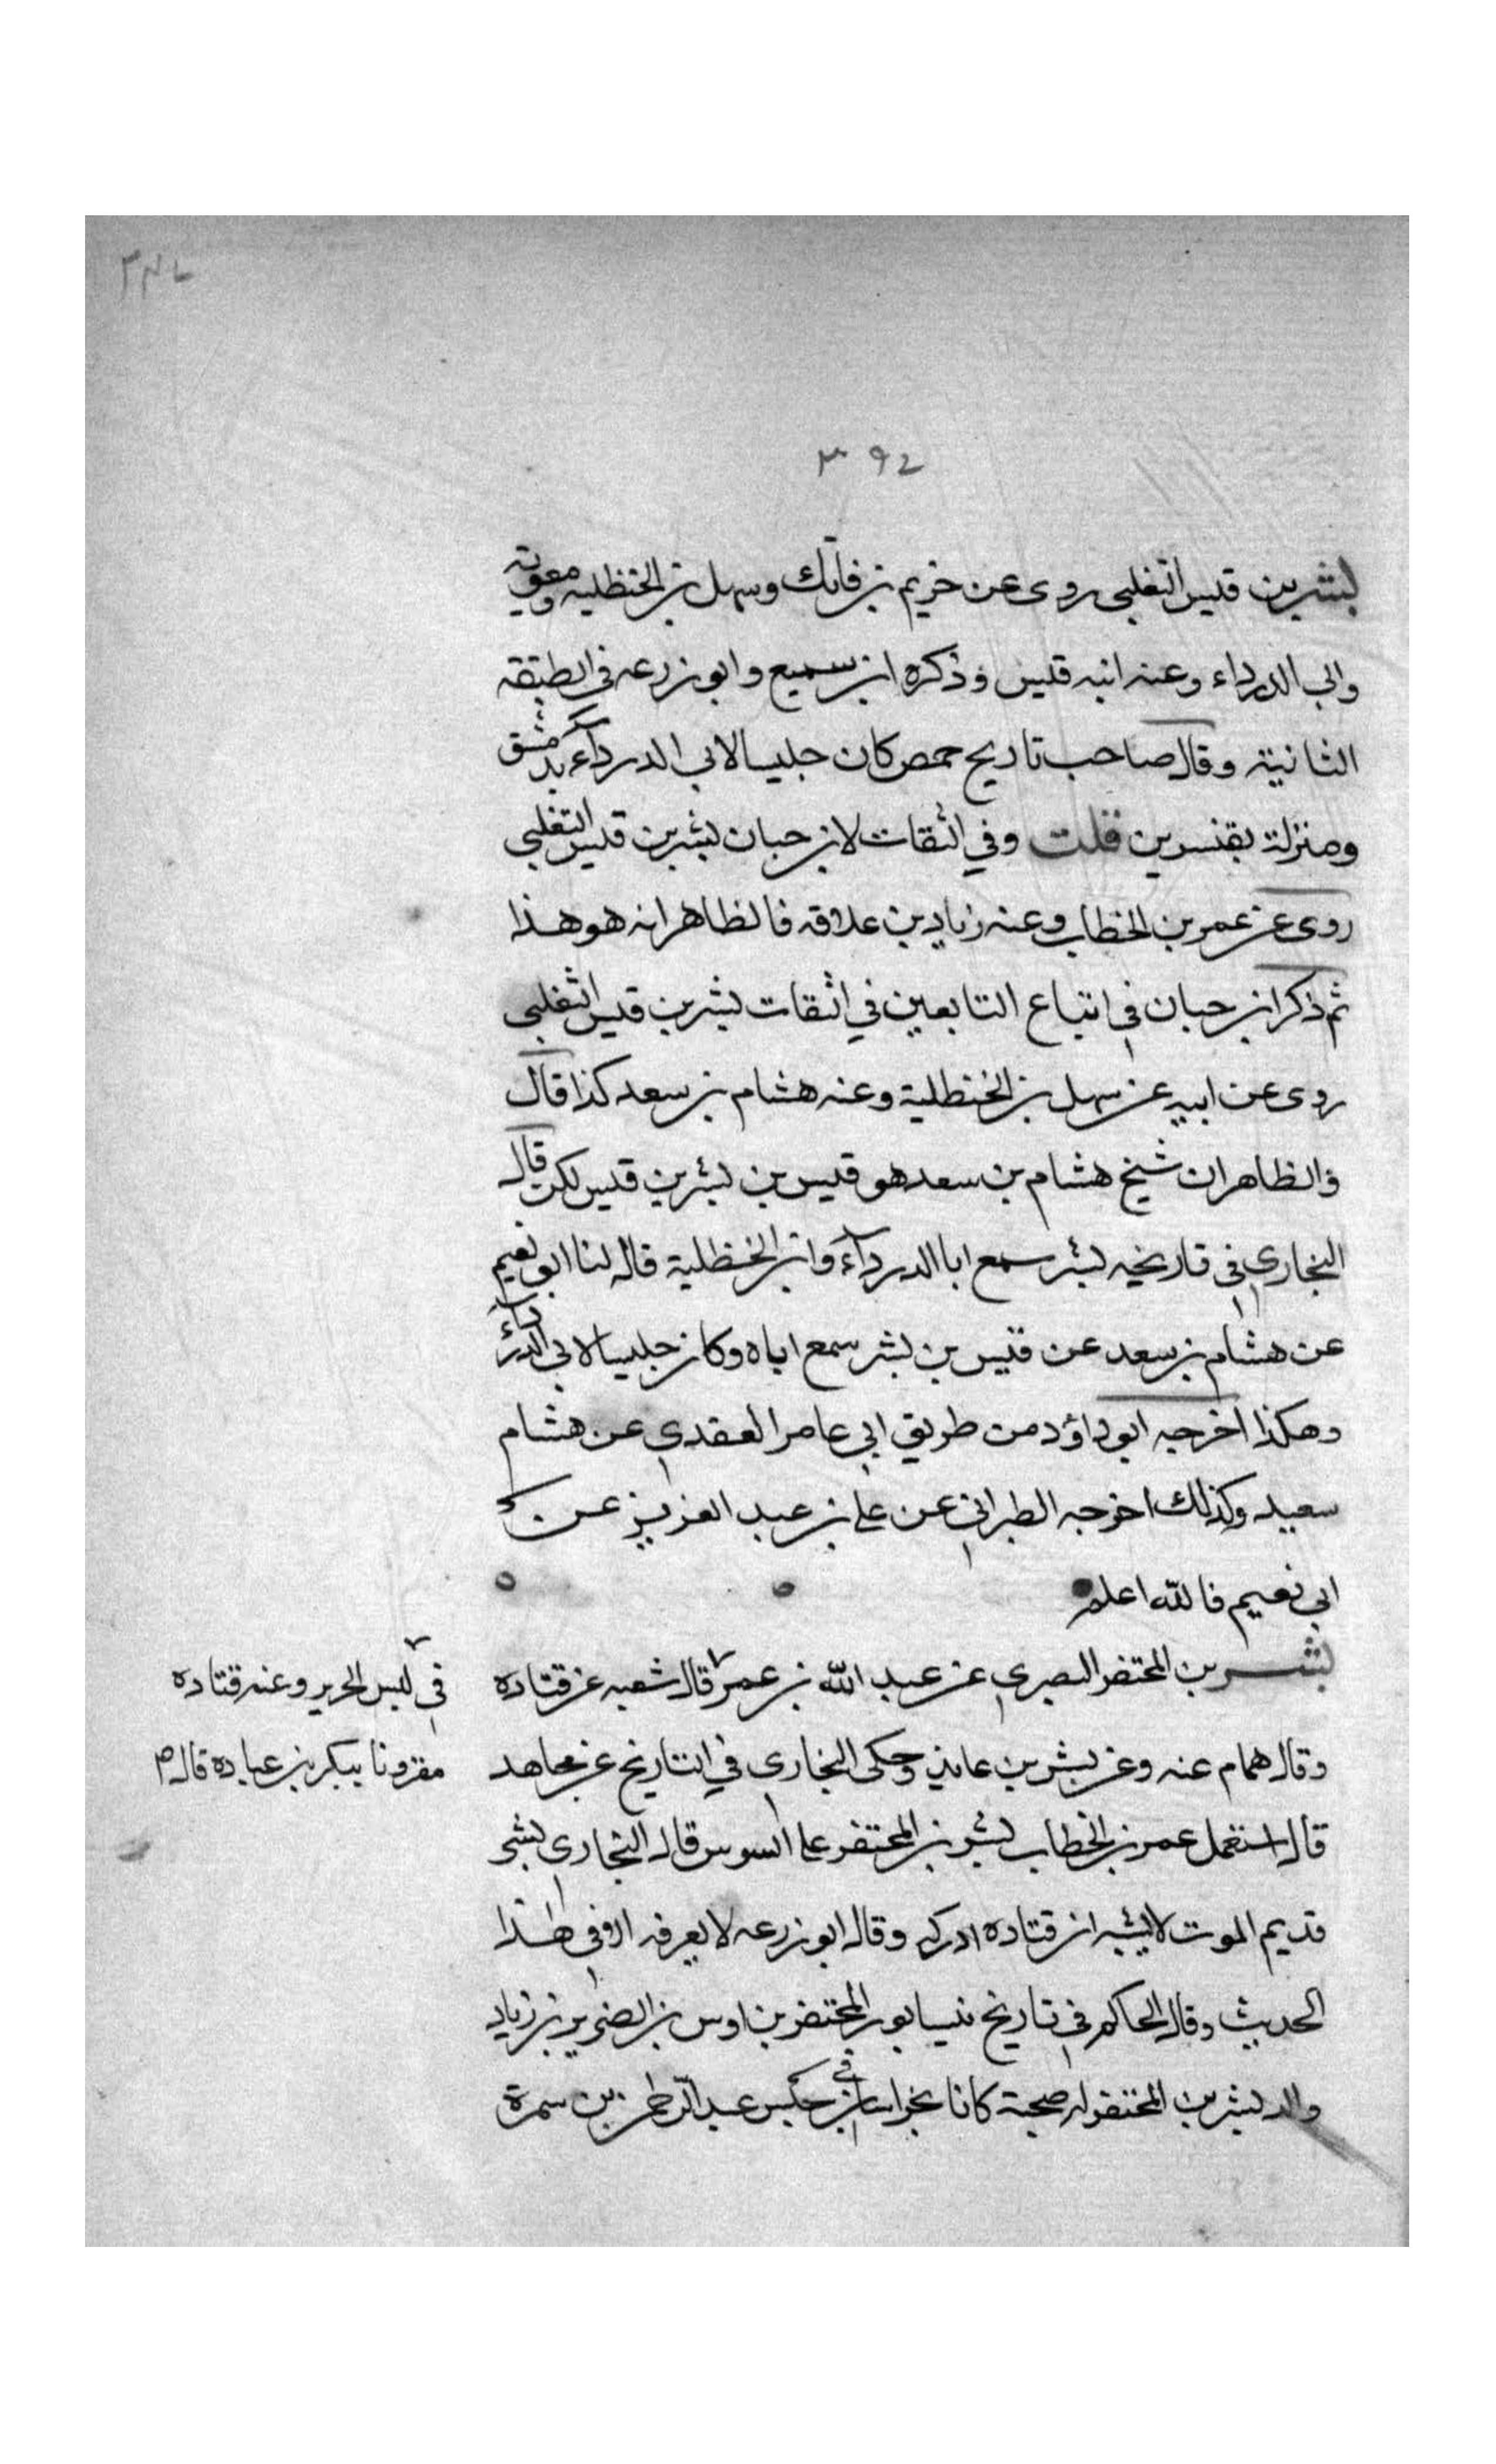 ٣٩٤
٣٩٤
بشر بن قيس التغلبي روى عن خريم بن فاتك وسهل بن الحنظليه ومعوية
وابي الدرداء وعنه ابنه قيس وذكره ابن سميع وابو زرعه في الطبقه
الثانية وقال صاحب تاريخ حمص كان جليسا لابي الدرداء بدمشق
ومنزلة بقنسرين قلت وفي الثقات لابن حبان بشر بن قيس التغلبي
روى عن عمر بن الخطاب وعنه زياد بن علاقه فالظاهر انه هو هذا
ثم ذكر ابن حبان في اتباع التابعين في الثقات بشر بن قيس الثغلبي
روى عن ابيه عن سهل بن الحنظلية وعنه هشام بن سعد كذا قال
والظاهر ان شيخ هشام بن سعد هو قيس بن بشر بن قيس لكن قال
البخاري في تاريخه بشر سمع ابا الدرداء وابن الحنظلية قال لنا ابو نعيم
عن هشام بن سعد عن قيس بن بشر سمع اباه وكان جليسا لابي الدرداء
وهكذا اخرجه ابو داؤد من طريق ابي عامر العقدي عن هشام
سعيد وكذلك اخرجه الطبراني عن علي بن عبد العزيز عن
ابي نعيم فالله اعلم
بشر بن المحتفز البصري عن عبد الله بن عمر قال شعبه عن قتادة
في لبس الحرير وعنه قتاده
وقال همام عنه وعن بشر بن عايذ وحكى البخاري في التاريخ عن مجاهد
مقرونا ببكر بن عباده قال م
قال استعمل عمر بن الخطاب بشر بن المحتفز على السوس قال البخاري بشر
قديم الموت لا يشبه ان قتاده ادركه وقال ابو زرعه لا يعرفه الا في هذا
الحديث وقال الحاكم في تاريخ نيسابور المحتفز بن اوس بن الضرير بن زياد
والد بشر بن المحتفز له صحبة كانا بخراسان في جيش عبد الرحمن بن سمرة